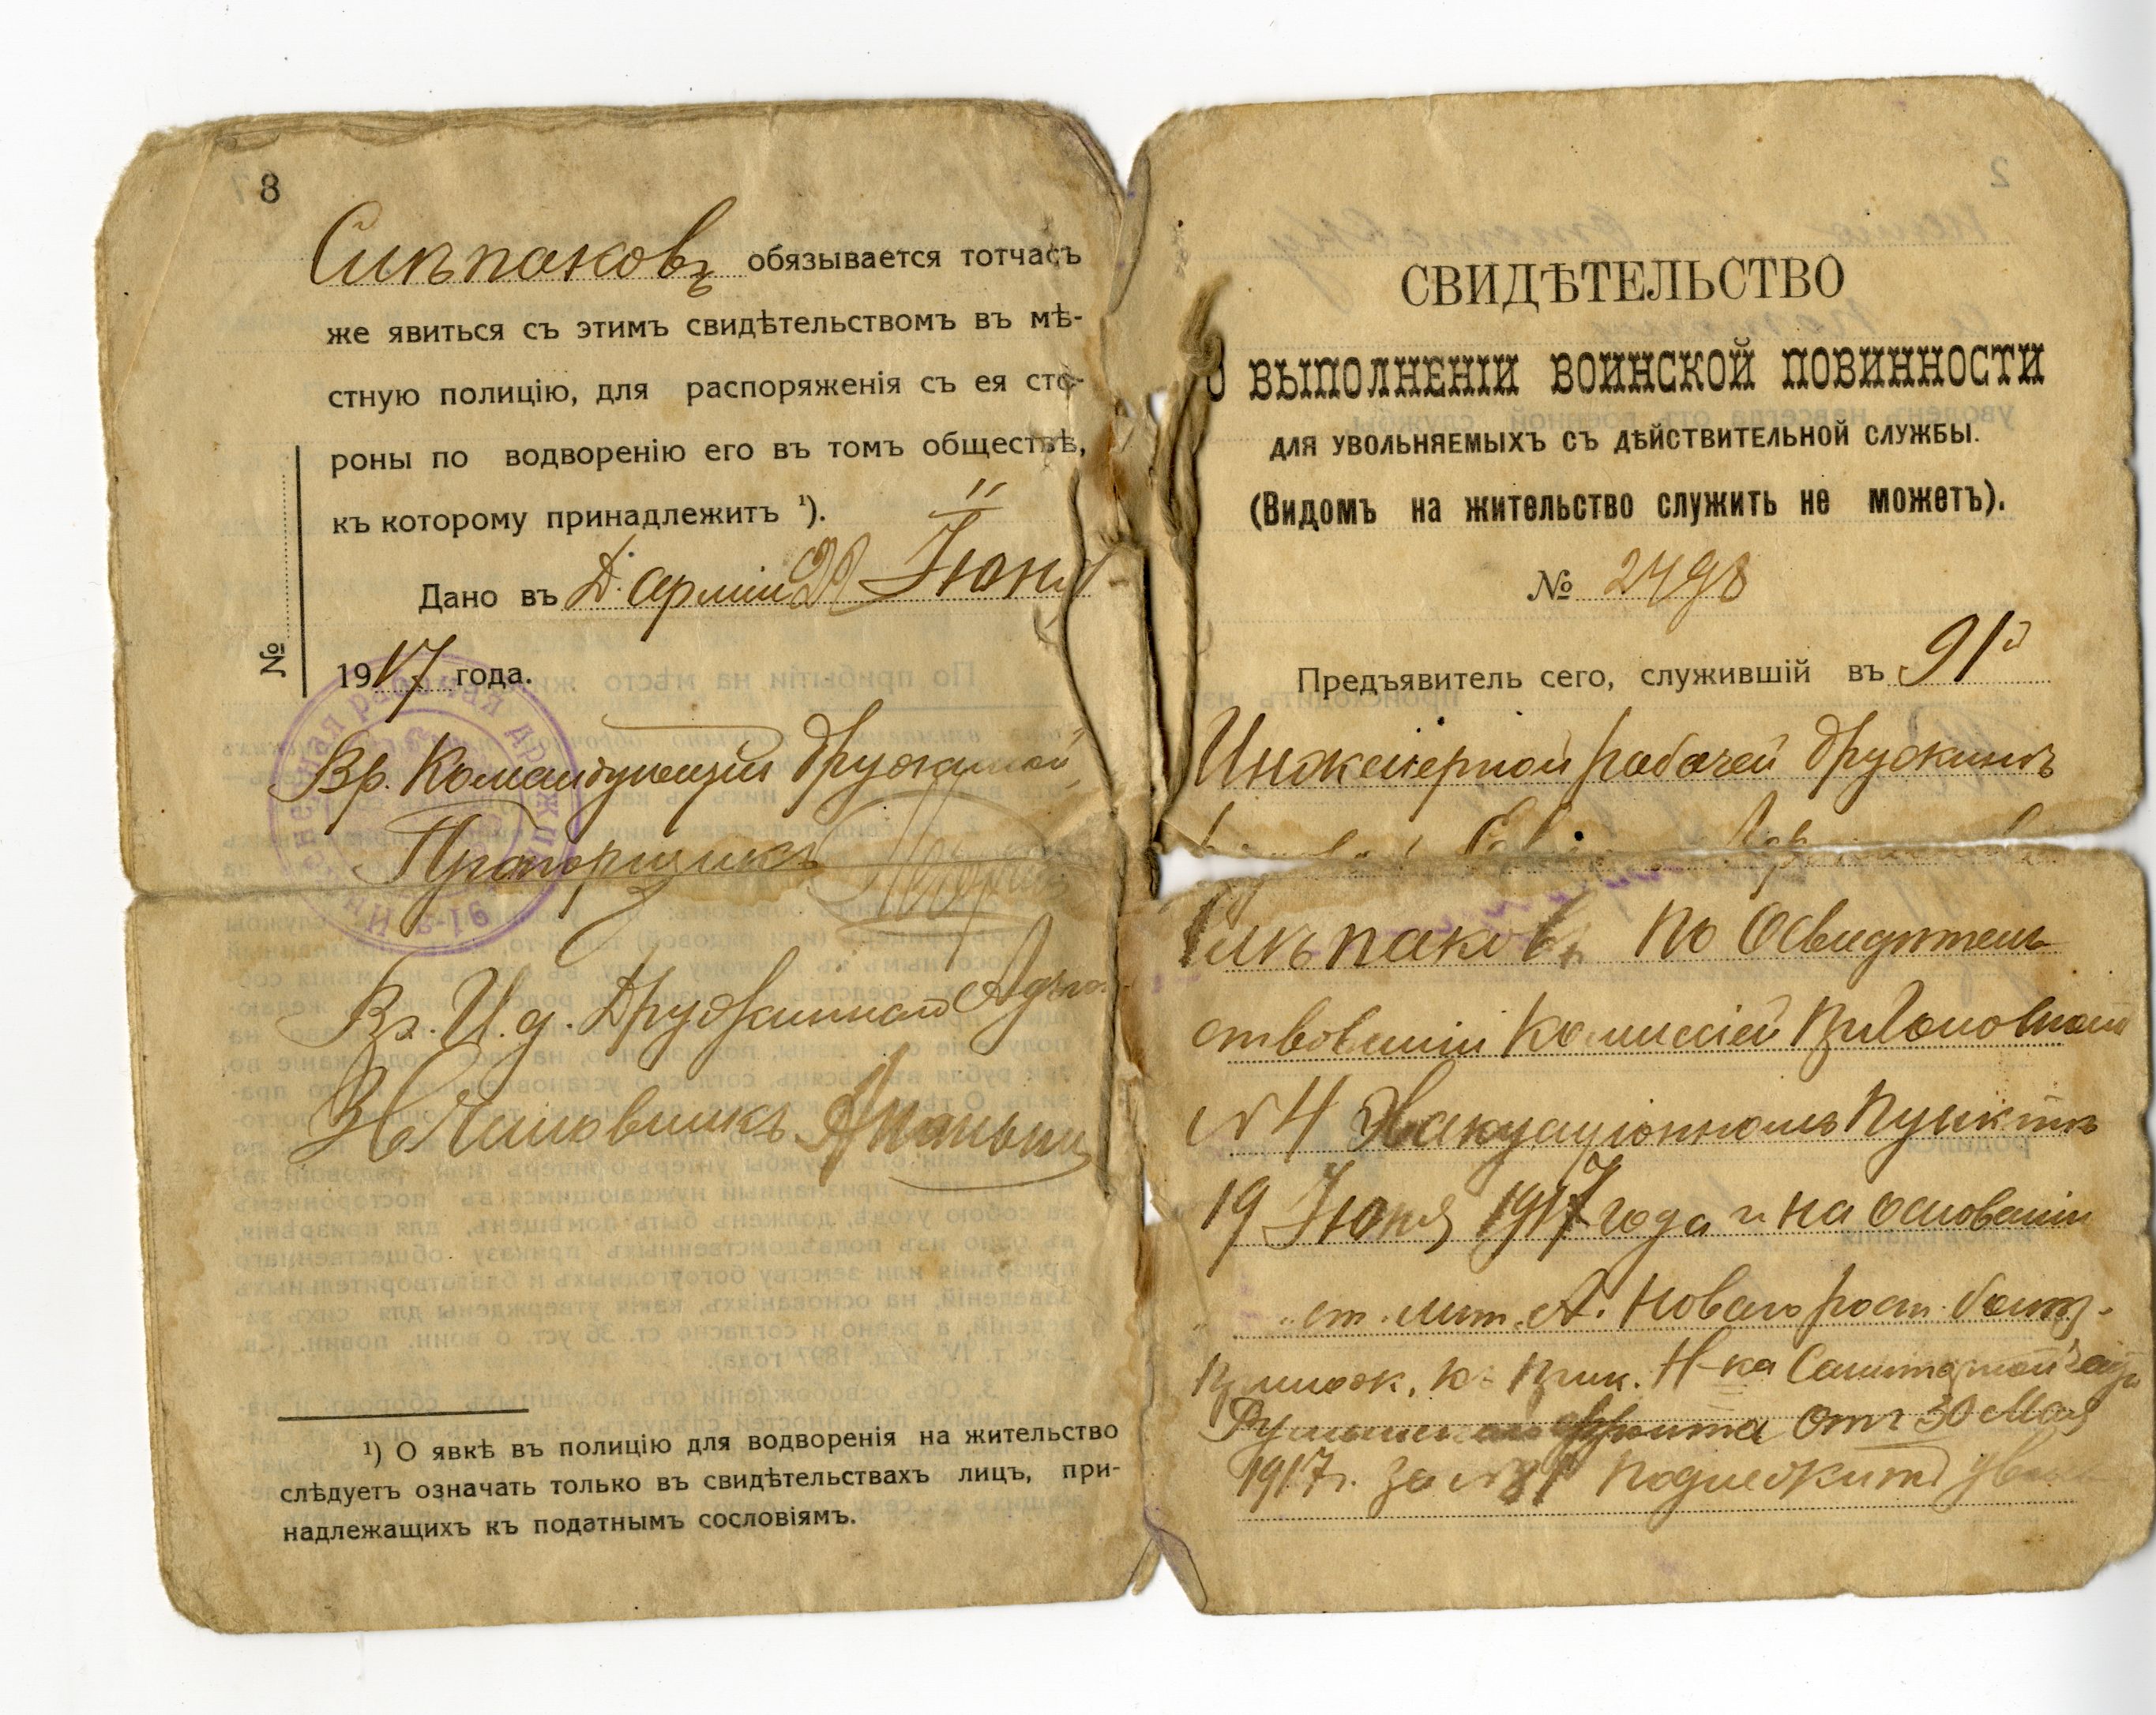 8
Слѣпаковъ обязывается тотчасъ
же явиться съ этимъ свидѣтельствомъ въ мѣ-
стную полицію, для распоряженія съ ея сто-
роны по водворенію его въ томъ обществѣ,
къ которому принадлежитъ ¹).
Дано въ Д. Арміи Іюня
1917 года.
№
Вр. Командующій дружиной
Прапорщикъ
Вр. И. д. Дружиннаго Адъют.
Чиновникъ
¹) О явкѣ въ полицію для водворенія на жительство
слѣдуетъ означать только въ свидѣтельствахъ лицъ, при-
надлежащихъ къ податнымъ сословіямъ.
СВИДѢТЕЛЬСТВО
О ВЫПОЛНЕНІИ ВОИНСКОЙ ПОВИННОСТИ
ДЛЯ УВОЛЬНЯЕМЫХЪ СЪ ДѢЙСТВИТЕЛЬНОЙ СЛУЖБЫ.
(Видомъ на жительство служить не можетъ).
№ 2498
Предъявитель сего, служившій въ 91й
Инженерной рабочей дружинѣ
Слѣпаковъ по Освидѣтель
ствованіи Комиссіей при Головномъ
№ 4 Эвакуаціонномъ Пунктѣ
19 Іюня 1917 года и на основаніи
ст. лит. А. Новаго росп. болѣз.
прилож. къ прик. Н-ка Санитарной части
Румынскаго фронта отъ 30 Мая
1917 г. за № 81 подлежитъ